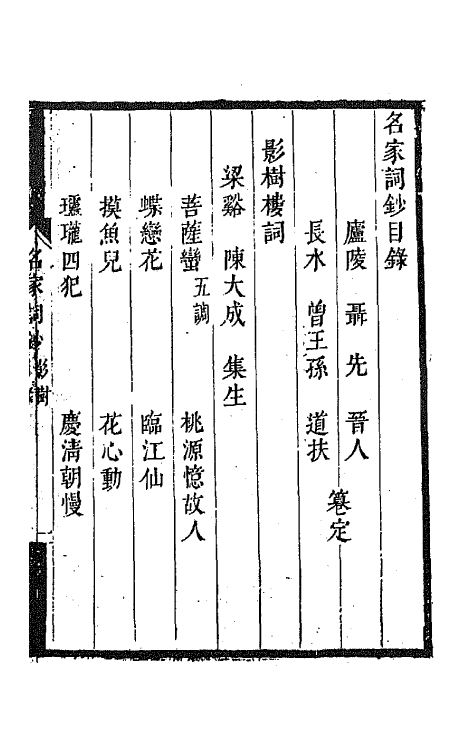 名家詞鈔目錄
廬陵 聶先 晉人
長水 曾王孫 道扶
篹定
影樹樓詞
梁谿 陳大成 集生
菩薩蠻五調 桃源憶故人
蝶戀花 臨江仙
摸魚兒 花心動
瓏四犯 慶清朝慢
名家詞鈔 影樹